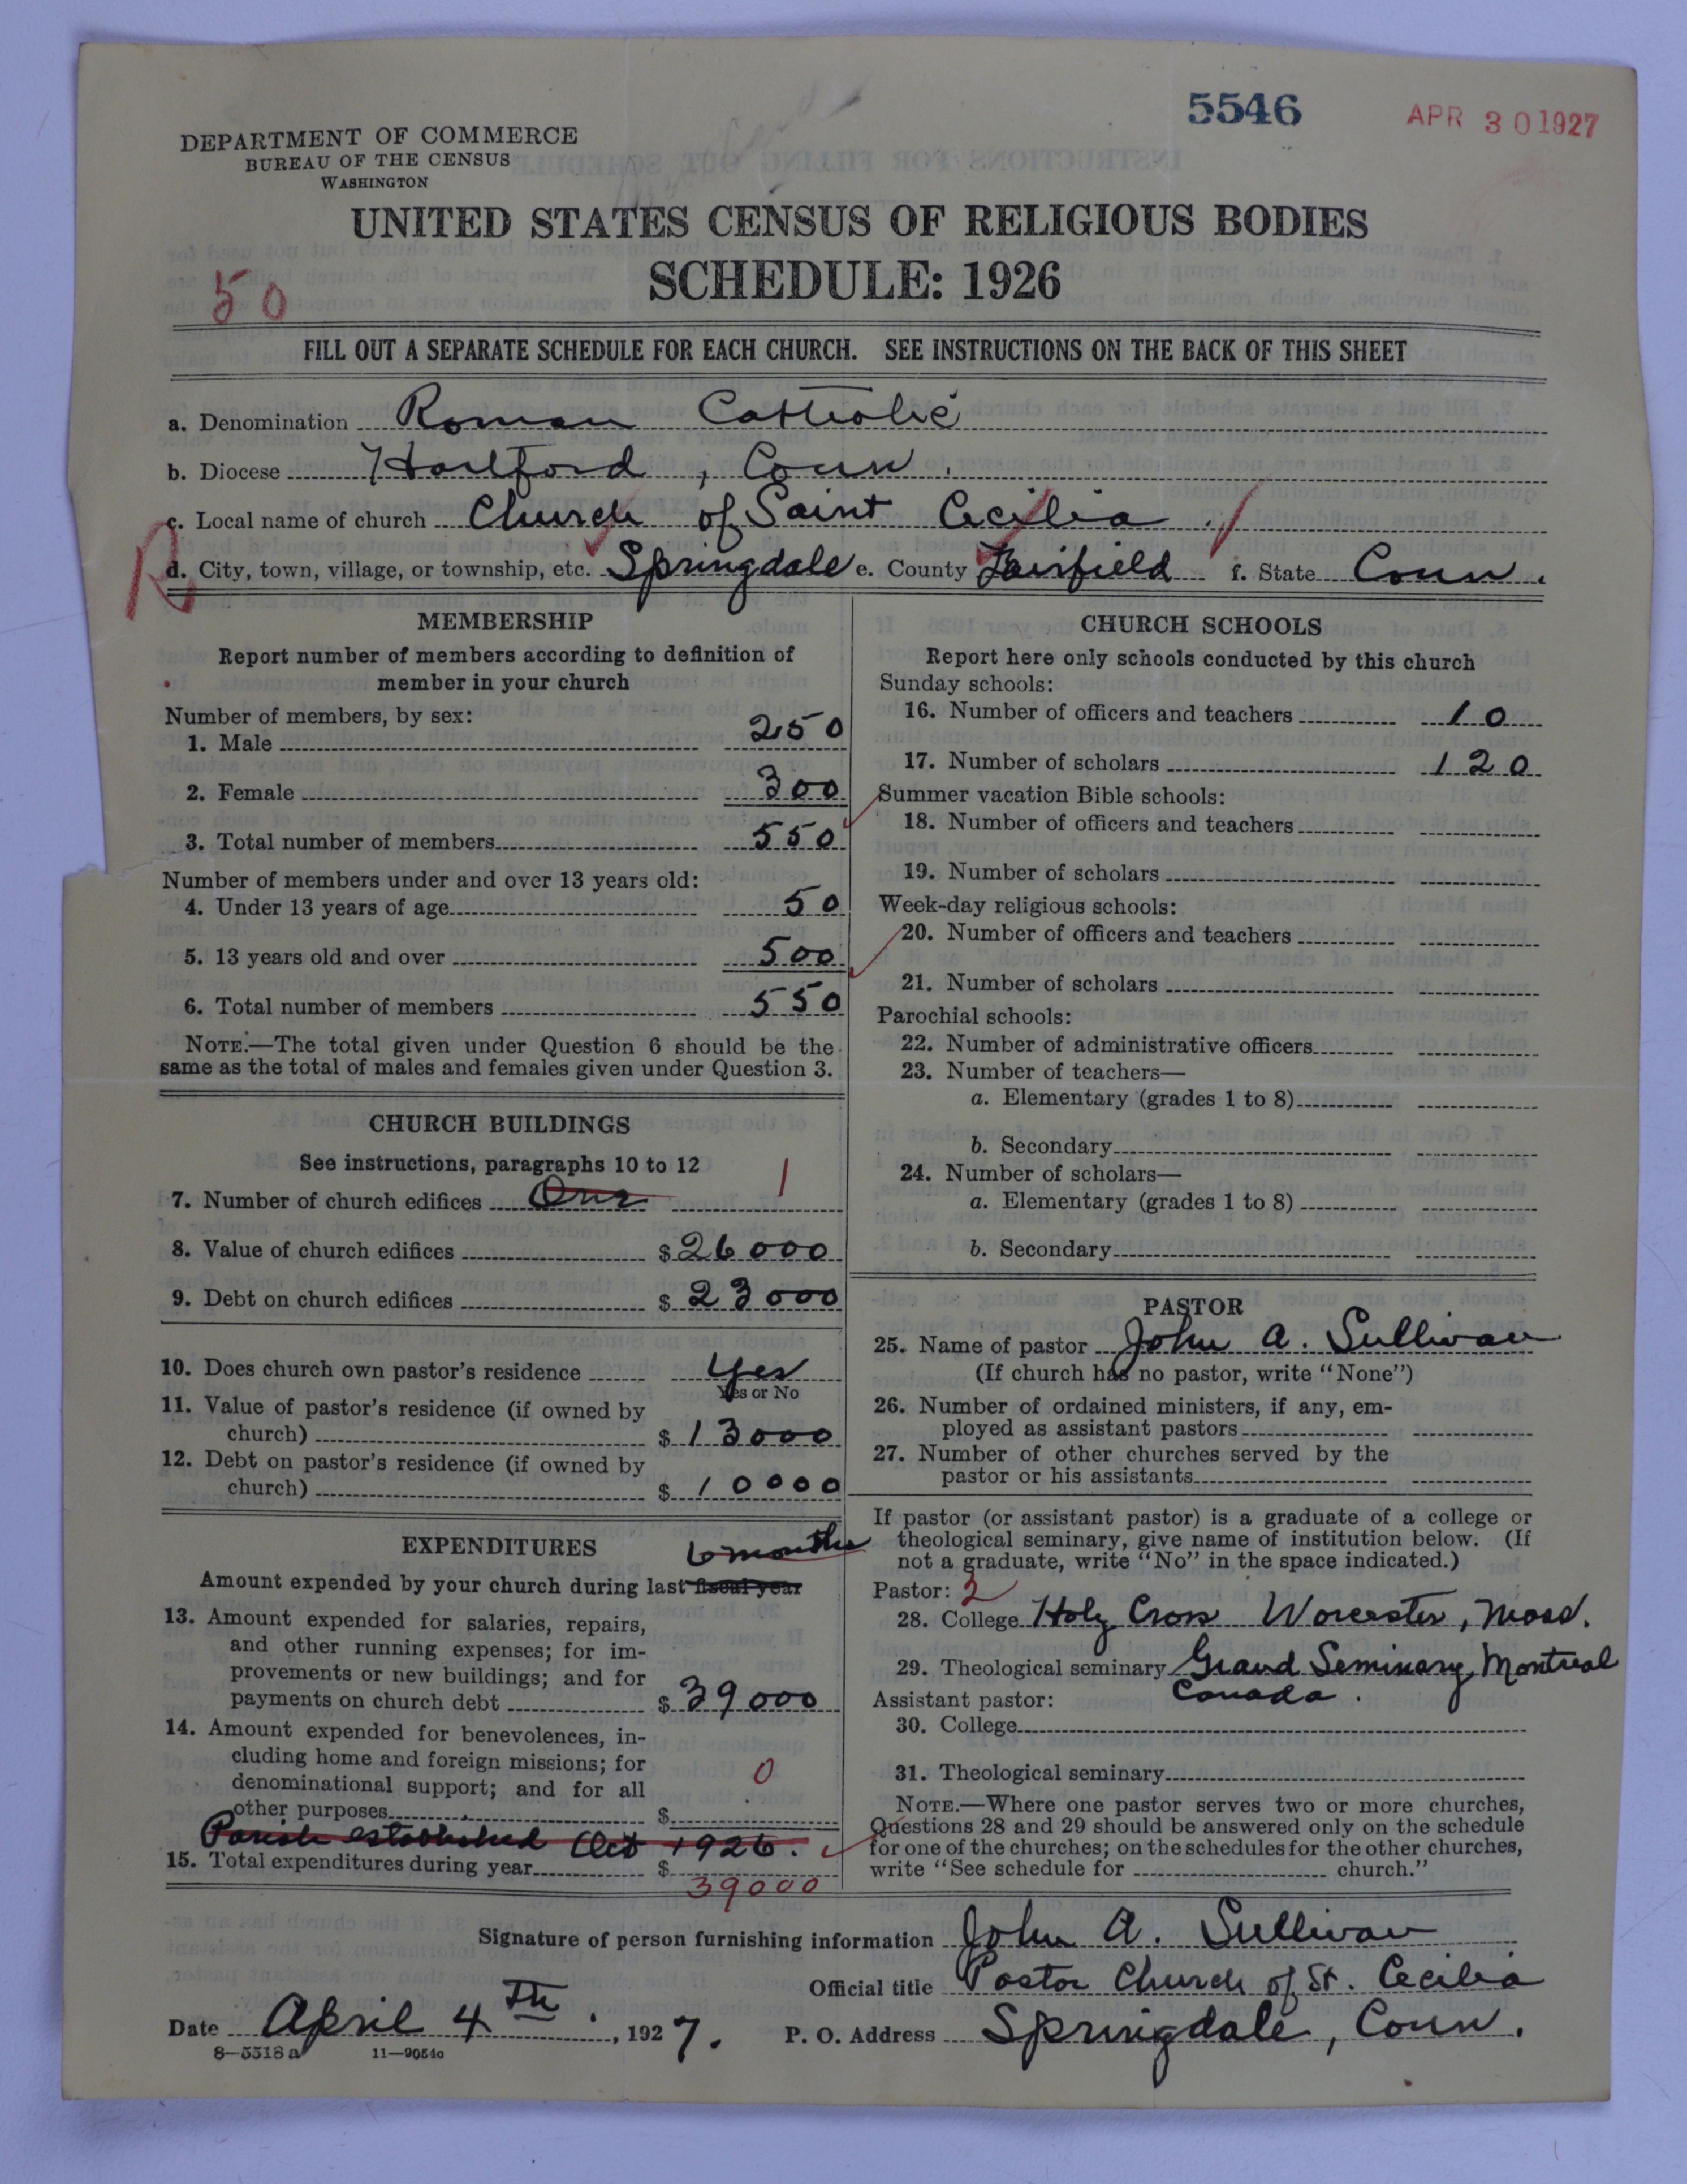 5546
APR 30 1927
DEPARTMENT OF COMMERCE
BUREAU OF THE CENSUS
WASHINGTON
UNITED STATES CENSUS OF RELIGIOUS BODIES
SCHEDULE: 1926
50
FILL OUT A SEPARATE SCHEDULE FOR EACH CHURCH. SEE INSTRUCTIONS ON THE BACK OF THIS SHEET
a. Denomination Roman Catholic
b. Diocese Hartford, Conn.
c. Local name of church Church of Saint Cecilia.
R
d. City, town, village, or township, etc. Springdale e. County Fairfield f. State Conn.
MEMBERSHIP
Report number of members according to definition of
member in your church
Number of members, by sex:
1. Male 250
2. Female 300
3. Total number of members 550
Number of members under and over 13 years old:
4. Under 13 years of age 50
5. 13 years old and over 500
6. Total number of members 550
NOTE.—The total given under Question 6 should be the
same as the total of males and females given under Question 3.
CHURCH BUILDINGS
See instructions, paragraphs 10 to 12
7. Number of church edifices One 1
8. Value of church edifices $ 26000
9. Debt on church edifices $ 23000
10. Does church own pastor's residence Yes
Yes or No
11. Value of pastor's residence (if owned by
church) $ 13000
12. Debt on pastor's residence (if owned by
church) $ 10000
EXPENDITURES
6 months
Amount expended by your church during last fiscal year
13. Amount expended for salaries, repairs,
and other running expenses; for im-
provements or new buildings; and for
payments on church debt $ 39000
14. Amount expended for benevolences, in-
cluding home and foreign missions; for
denominational support; and for all
other purposes $ 0
Parish established Oct 1926.
15. Total expenditures during year $ 39000
CHURCH SCHOOLS
Report here only schools conducted by this church
Sunday schools:
16. Number of officers and teachers 10
17. Number of scholars 120
Summer vacation Bible schools:
18. Number of officers and teachers
19. Number of scholars
Week-day religious schools:
20. Number of officers and teachers
21. Number of scholars
Parochial schools:
22. Number of administrative officers
23. Number of teachers—
a. Elementary (grades 1 to 8)
b. Secondary
24. Number of scholars—
a. Elementary (grades 1 to 8)
b. Secondary
PASTOR
25. Name of pastor John A. Sullivan
(If church has no pastor, write "None")
26. Number of ordained ministers, if any, em-
ployed as assistant pastors
27. Number of other churches served by the
pastor or his assistants
If pastor (or assistant pastor) is a graduate of a college or
theological seminary, give name of institution below. (If
not a graduate, write "No" in the space indicated.)
Pastor: 2
28. College Holy Cross Worcester, Mass.
29. Theological seminary Grand Seminary, Montreal
Canada.
Assistant pastor:
30. College
31. Theological seminary
NOTE.—Where one pastor serves two or more churches,
Questions 28 and 29 should be answered only on the schedule
for one of the churches; on the schedules for the other churches,
write "See schedule for church."
Signature of person furnishing information John A. Sullivan
Official title Pastor Church of St. Cecilia
Date April 4th., 1927. P. O. Address Springdale, Conn.
8—5518a 11—9054c